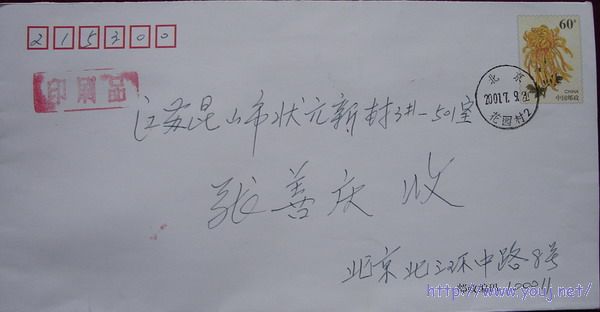 215300
60分
CHINA
中国邮政
北京
2001.7.5
花园村2
印刷品
江苏昆山市状元新村3#-501室
张善庆 收
北京北三环中路8号
邮政编码 100011
http://www.youj.net/